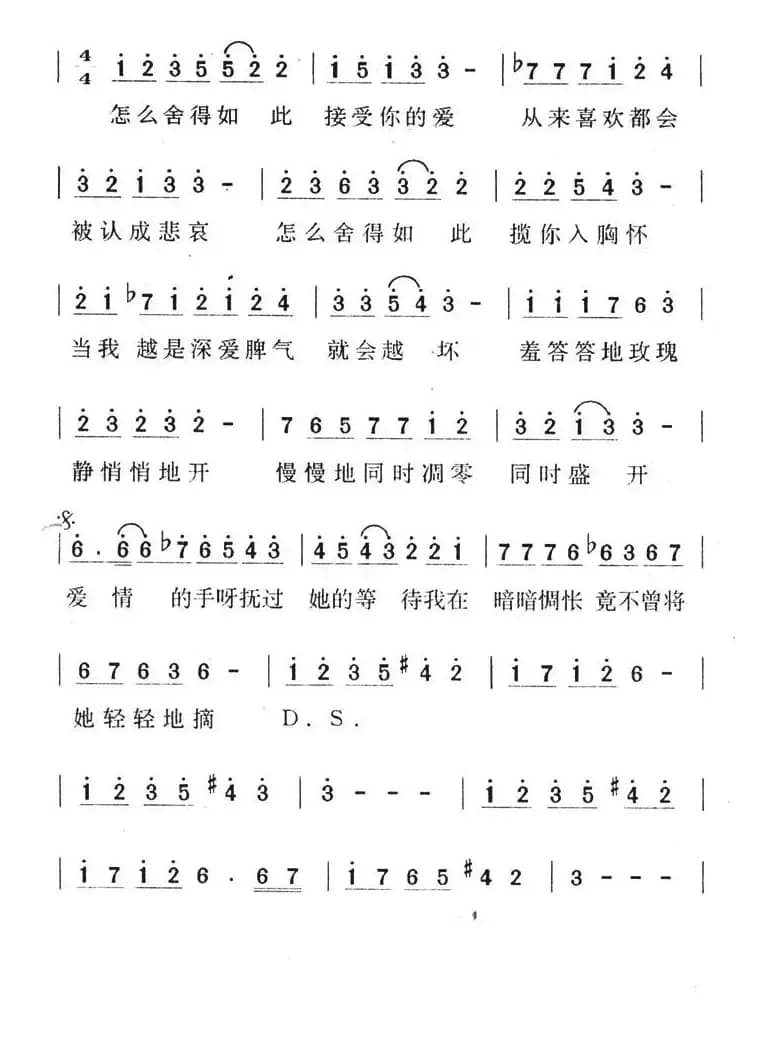 4/4 | 1 2 3 5 5 2 2 | 1 5 1 3 3 - | ♭7 7 7 1 2 4 |
怎么舍得如 此 接受你的爱 从来喜欢都会
| 3 2 1 3 3 - | 2 3 6 3 3 2 2 | 2 2 5 4 3 - |
被认成悲哀 怎么舍得如 此 揽你入胸怀
| 2 1 ♭7 1 2 1 2 4 | 3 3 5 4 3 - | 1 1 1 7 6 3 |
当我 越是深爱脾气 就会越 坏 羞答答地玫瑰
| 2 3 2 3 2 - | 7 6 5 7 7 1 2 | 3 2 1 3 3 - |
静悄悄地开 慢慢地同时凋零 同时盛 开
| 6 . 6 6 ♭7 6 5 4 3 | 4 5 4 3 2 2 1 | 7 7 7 6 ♭6 3 6 7 |
爱 情 的手呀抚过 她的等 待我在 暗暗惆怅 竟不曾将
| 6 7 6 3 6 - | 1 2 3 5 #4 2 | 1 7 1 2 6 - |
她轻轻地摘 D . S .
| 1 2 3 5 #4 3 | 3 - - - | 1 2 3 5 #4 2 |
| 1 7 1 2 6 . 6 7 | 1 7 6 5 #4 2 | 3 - - - |